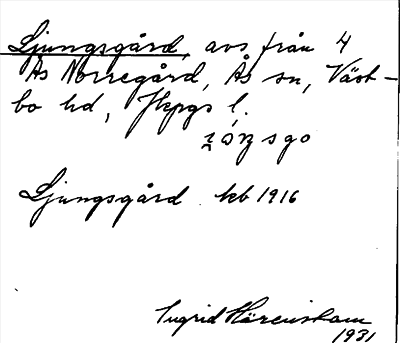 Ljungsgård, avs från 4
Ås Norregård, Ås sn, Väst-
bo hd, Jkpgs l.
Ljungsgård kb 1916
Ingrid
1931